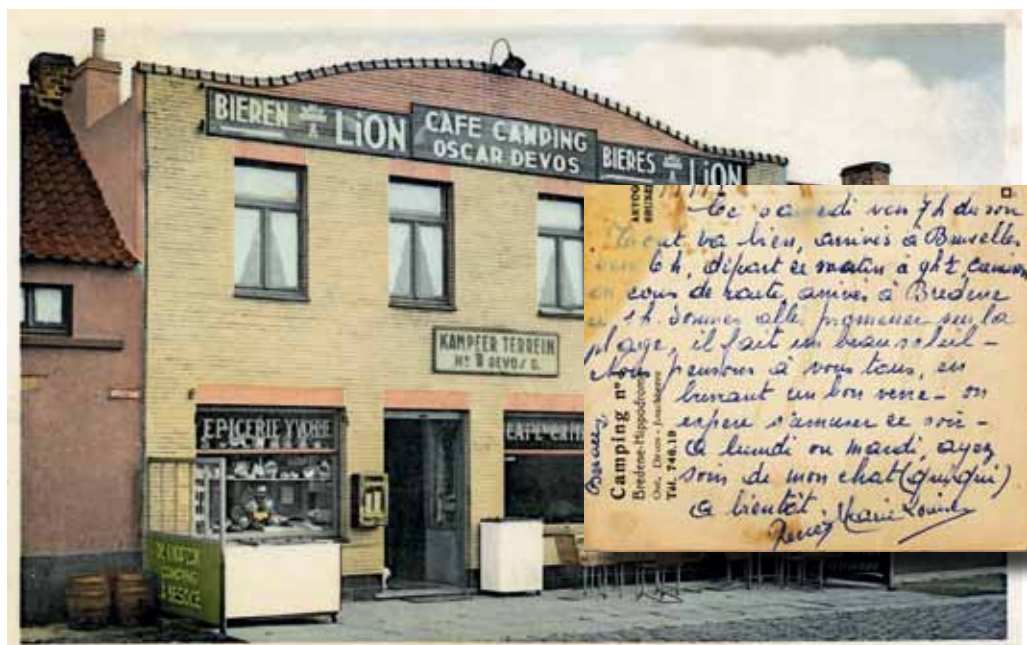 BIEREN LION
CAFE CAMPING
OSCAR DEVOS
BIERES LION
KAMPEER TERREIN
EPICERIE YVONNE
Ce samedi vers 7 h du soir
Tout va bien, arrivés à Bruxelles
6 h, départ ce matin à 9h½, camion
en cours de route, arrivés à Bredene
1 h. sommes allés promener sur la
plage, il fait un beau soleil -
Nous pensons à vous tous, en
buvant un bon verre - on
espere s'amuser ce soir -
a lundi ou mardi, ayez
soin de mon chat (quiqui)
a bientôt
Marie Louise
Camping n° 1
Bredene-Hippodrome
Tél. 740.10